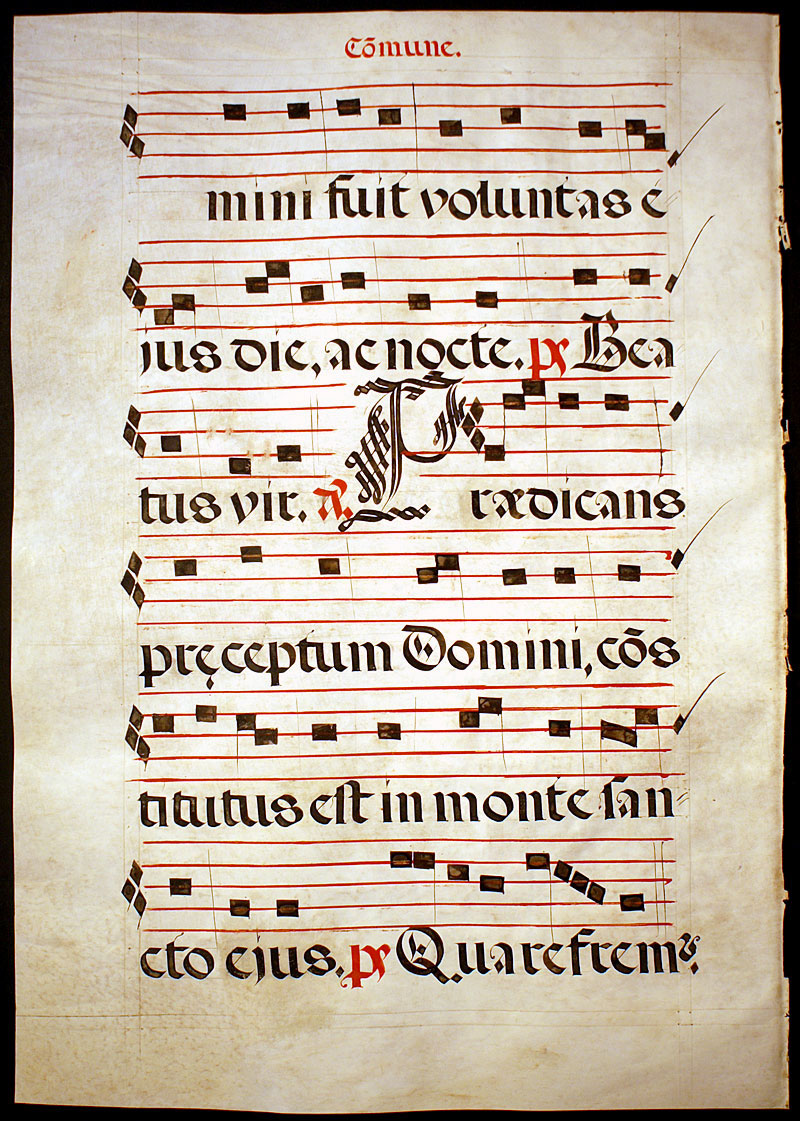 Cōmune.
mini fuit voluntas e
jus die, ac nocte. ps Bea
tus vir. A. Prædicans
pręceptum Domini, cōs
titutus est in monte san
cto ejus. ps Quare frem̃